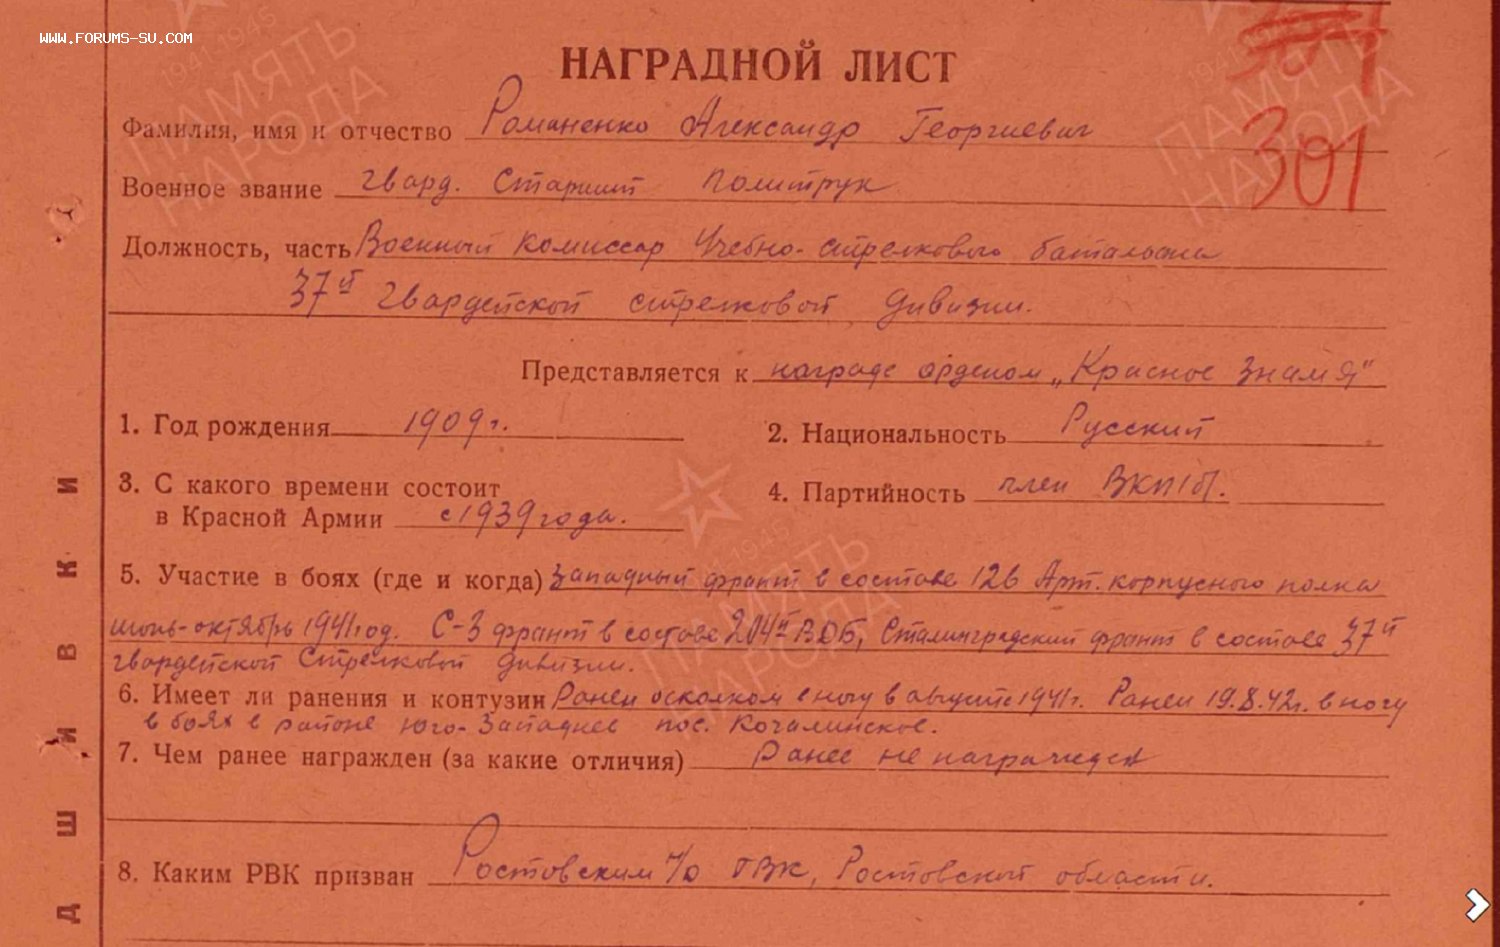 WWW.FORUMS-SU.COM
НАГРАДНОЙ ЛИСТ
301
Фамилия, имя и отчество Романенко Александр Георгиевич
Военное звание гвард. Старший политрук
Должность, часть Военный комиссар Учебно-стрелкового батальона
37й гвардейской стрелковой дивизии.
Представляется к награде орденом „Красное Знамя"
1. Год рождения 1909 г.
2. Национальность Русский
3. С какого времени состоит
в Красной Армии с 1939 года.
4. Партийность член ВКП(б).
5. Участие в боях (где и когда) Западный фронт в составе 126 Арт. корпусного полка
июнь-октябрь 1941 год. С-З фронт в составе 204й ВДБ, Сталинградский фронт в составе 37й
гвардейской Стрелковой дивизии.
6. Имеет ли ранения и контузии Ранен осколком в ногу в августе 1941 г. Ранен 19.8.42 г. в ногу
в боях в районе юго-Западнее пос. Качалинское.
7. Чем ранее награжден (за какие отличия) Ранее не награжден
8. Каким РВК призван Ростовским г/о ГВК, Ростовской области.
Д Ш И В К И
ПАМЯТЬ НАРОДА
1941 1945